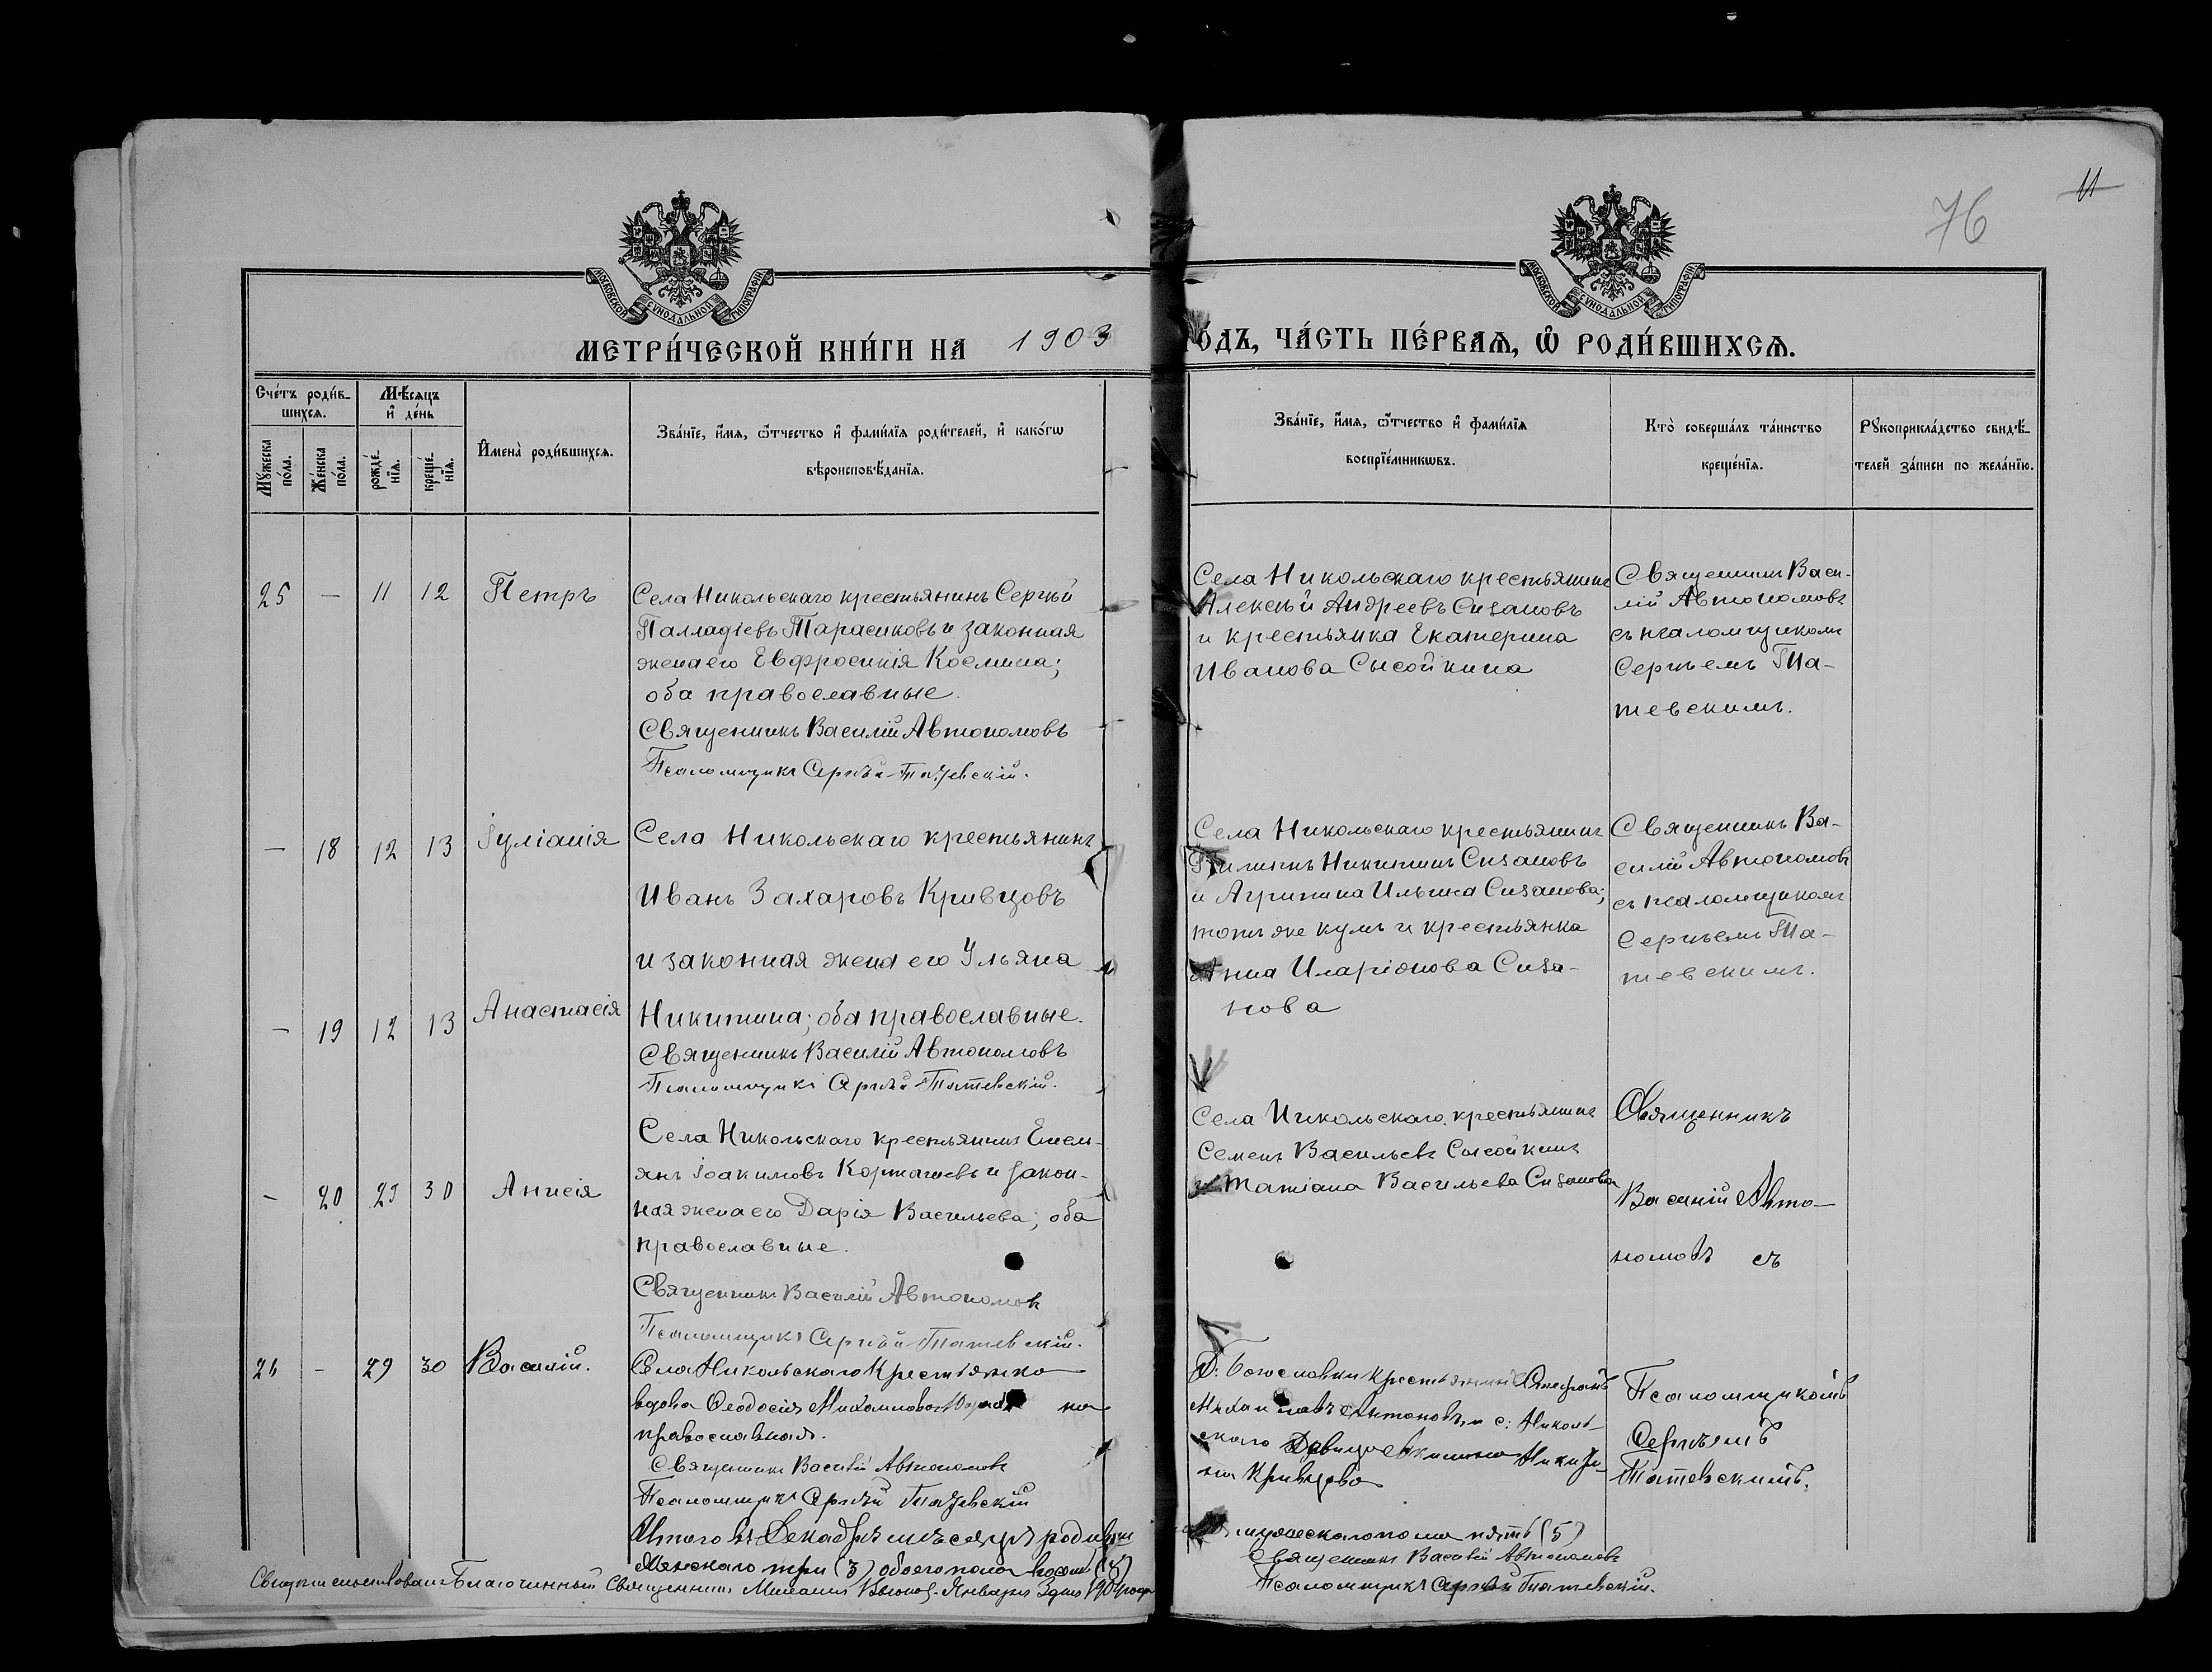 76
11
МОСКОВСКОЙ СѴНОДАЛЬНОЙ ТИПОГРАФІИ
МОСКОВСКОЙ СѴНОДАЛЬНОЙ ТИПОГРАФІИ
МЕТРИ́ЧЕСКОЙ КНИ́ГИ НА 1903
О́ДЪ, ЧА́СТЬ ПЕ́РВАѦ, Ѡ҆ РОДИ́ВШИХСѦ.
Сче́тъ роди́в-
шихсѧ.
Мꙋ́жеска по́ла.
Же́нска по́ла.
Мѣ́сѧцъ
и҆ де́нь
рожде́-
нїѧ.
креще́-
нїѧ.
И҆мена̀ роди́вшихсѧ.
Зва́нїе, и҆́мѧ, ѻ҆́тчество и҆ фами́лїѧ роди́телей, и҆ како́гѡ
вѣроисповѣ́данїѧ.
Зва́нїе, и҆́мѧ, ѻ҆́тчество и҆ фами́лїѧ
воспрїе́мникѡвъ.
Кто̀ соверша́лъ та́инство
креще́нїѧ.
Рꙋкоприкла́дство свидѣ́-
телей за́писи по жела́нїю.
25 — 11 12 Петръ
Села Никольскаго крестьянинъ Сергѣй
Палладіевъ Тарасиковъ и законная
жена его Евфросинія Космина;
оба православные.
Священникъ Василій Автономовъ
Псаломщикъ Сергѣй Татевскій.
Села Никольскаго крестьянинъ
Алексѣй Андреевъ Сизановъ
и крестьянка Екатерина
Иванова Сысойкина
Священникъ Васи-
лій Автономовъ
съ псаломщикомъ
Сергѣемъ Та-
тевскимъ.
— 18 12 13 Іуліанія
Села Никольскаго крестьянинъ
Иванъ Захаровъ Кривцовъ
и законная жена его Ульяна
— 19 12 13 Анастасія
Никитина; оба православные.
Священникъ Василій Автономовъ
Псаломщикъ Сергѣй Татевскій.
Села Никольскаго крестьянинъ
Филиппъ Никитинъ Сизановъ
и Агрипина Ильина Сизанова;
тотъ же кумъ и крестьянка
Анна Иларіонова Сиза-
нова
Священникъ Ва-
силій Автономовъ
съ псаломщикомъ
Сергѣемъ Та-
тевскимъ.
— 20 29 30 Анисія
Села Никольскаго крестьянинъ Емель-
янъ Іоакимовъ Карташевъ и закон-
ная жена его Дарія Васильева; оба
православные.
Священникъ Василій Автономовъ
Псаломщикъ Сергѣй Татевскій.
Села Никольскаго крестьянинъ
Семенъ Васильевъ Сысойкинъ
и Татіана Васильева Сизанова
Священникъ
Василій Авто-
номовъ съ
26 — 29 30 Василій.
Села Никольскаго крестьянка
вдова Феодосія Михаилова на
православная.
Священникъ Василій Автономовъ
Псаломщикъ Сергѣй Татевскій
Д: Богословки крестьянинъ Стефанъ
Михаиловъ Антоновъ и с: Николь-
скаго Девица Акилина Никити-
на Кривцова
Псаломщикомъ
Сергѣемъ
Татевскимъ.
Итого въ Декабрѣ мѣсяцѣ родившихся
мужескаго пола пять (5)
женскаго три (3) обоего пола восемь (8)
Священникъ Василій Автономовъ
Псаломщикъ Сергѣй Татевскій.
Свидѣтельствовалъ Благочинный Священникъ Января 3 дня 1904 года